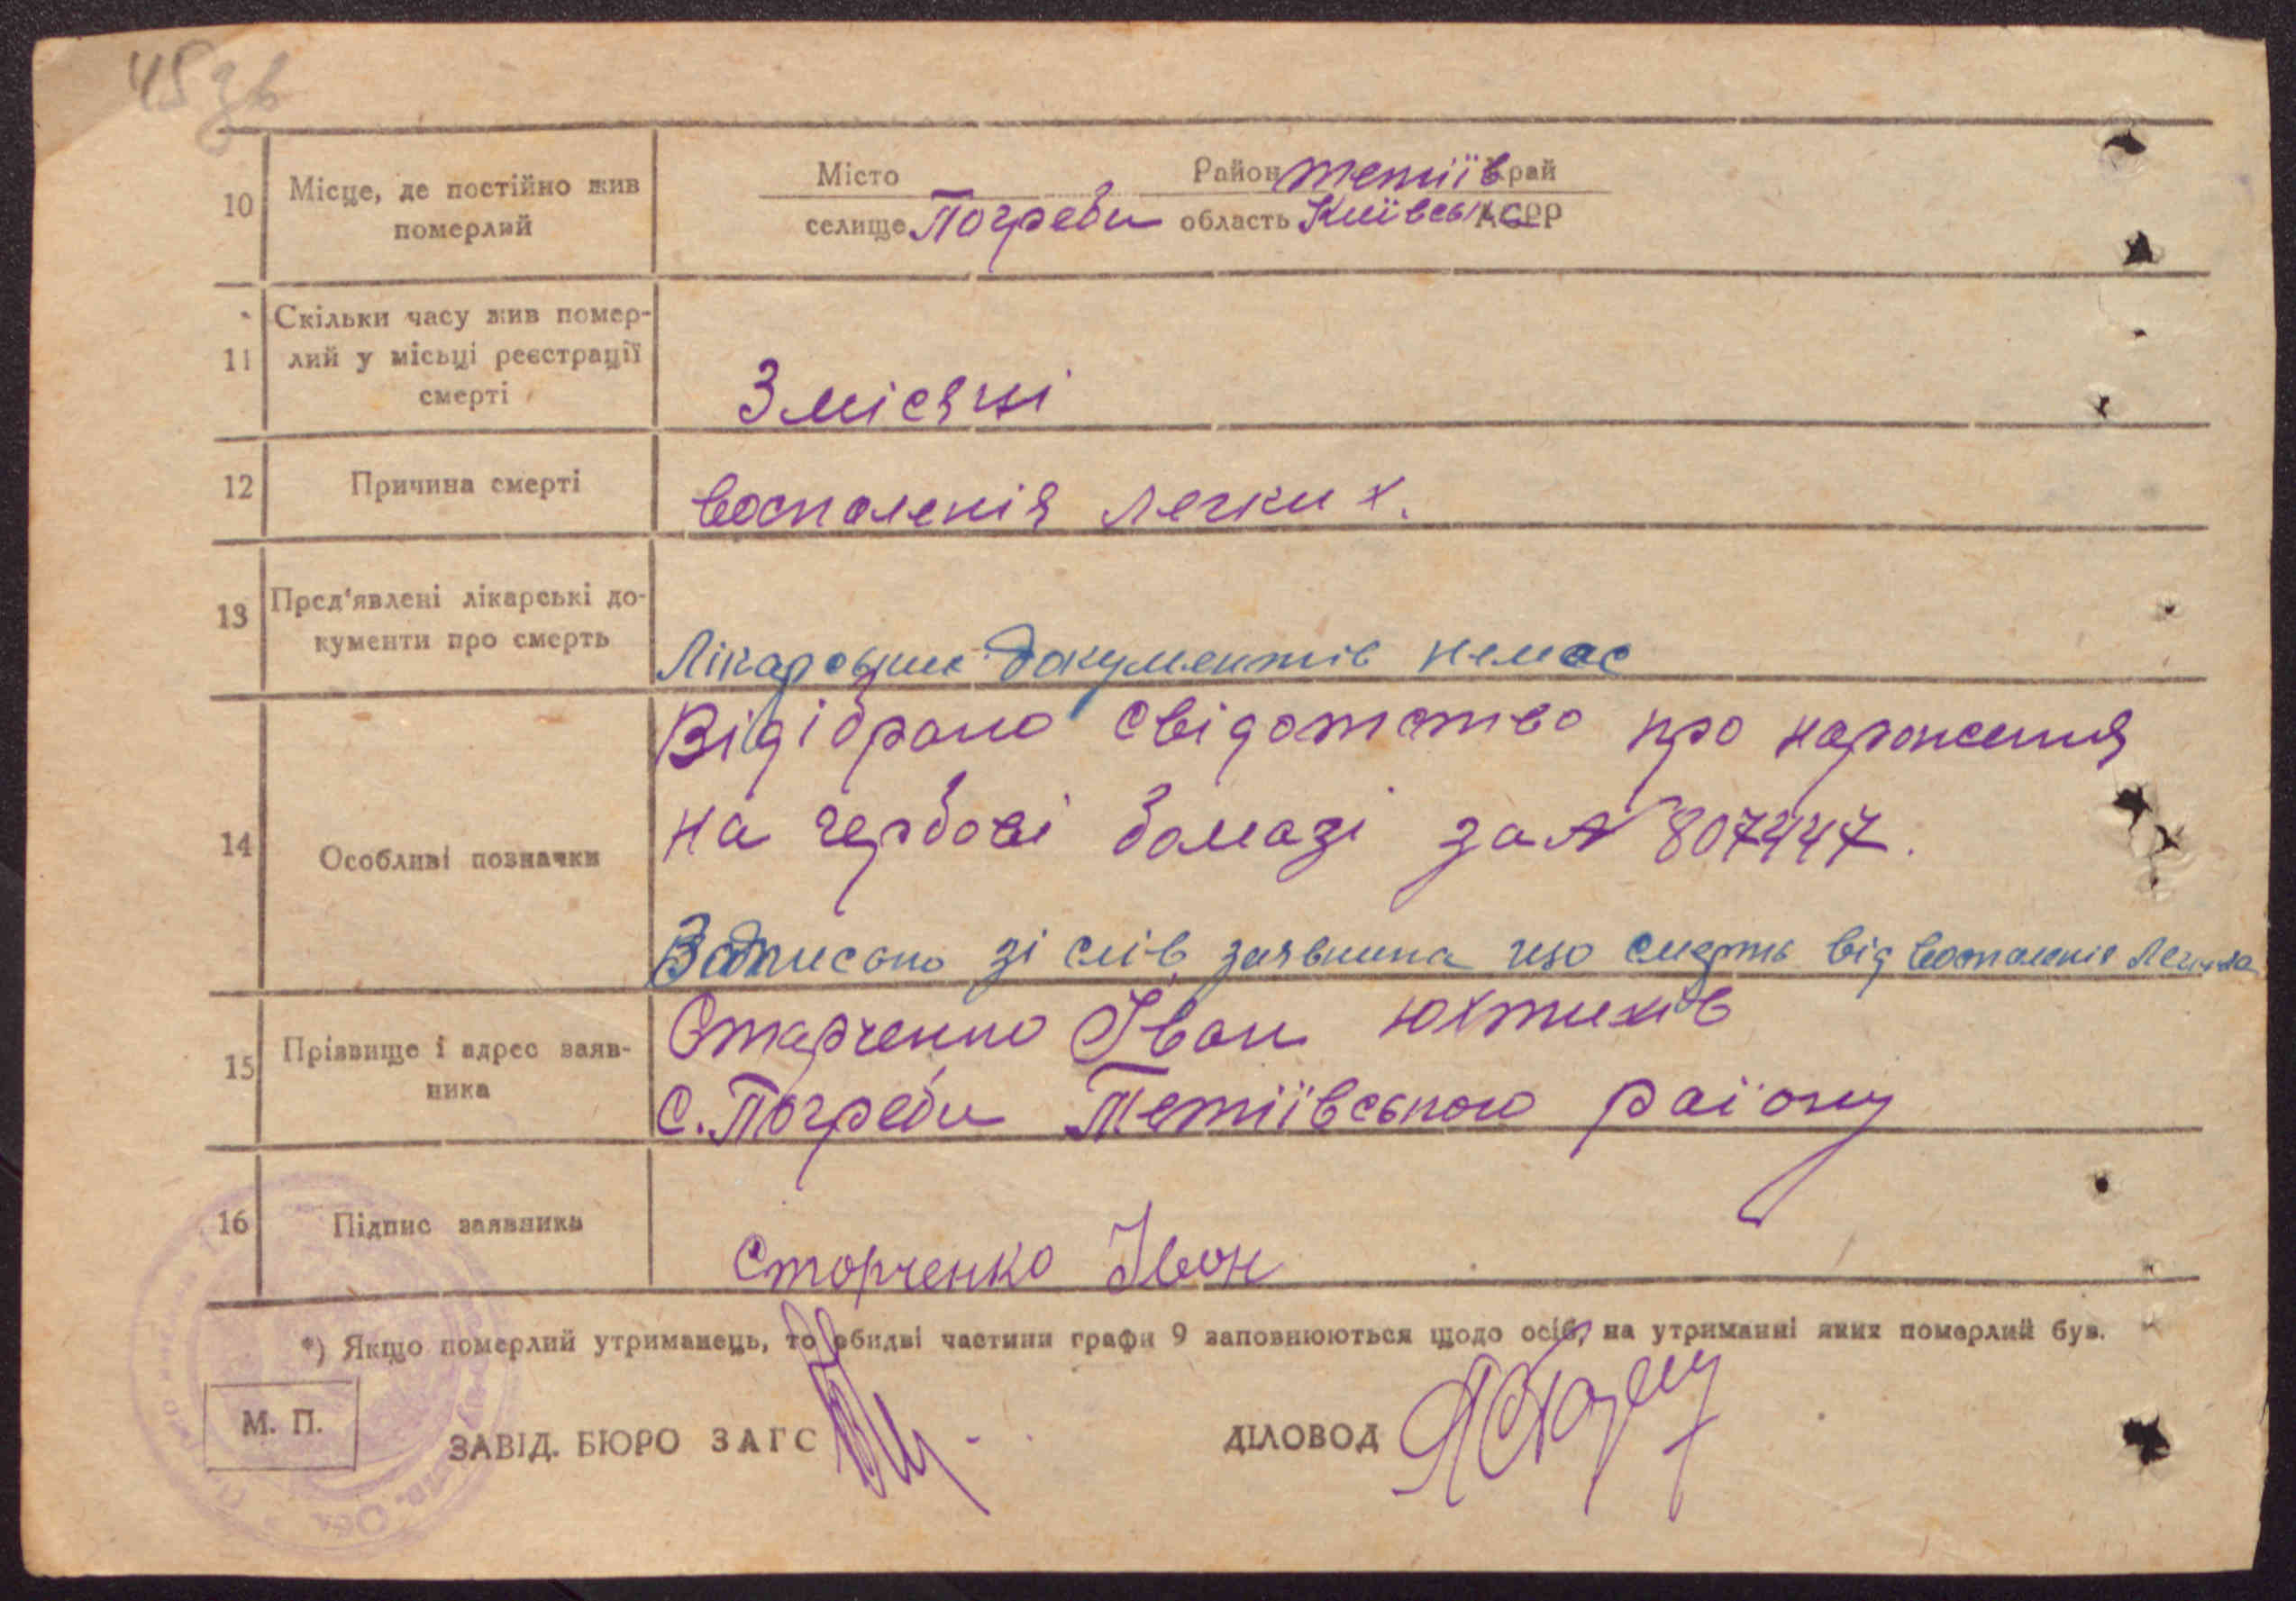 45 зв
10 Місце, де постійно жив померлий
Місто Район Тетіїв край
селище Погреби область Київськ АСРР
11 Скільки часу жив помер-
лий у місьці реєстрації
смерті
3 місяці
12 Причина смерті
воспаленія легких.
13 Пред'явлені лікарські до-
кументи про смерть
Лікарських документів немає
14 Особливі позначки
Відібрано свідотство про нароження
на гербові бомазі за № 807447.
Записано зі слів заявника що смерть від воспаленія
15 Прізвище і адрес заяв-
ника
Старченко Іван Юхтимів
с. Погреби Тетіївського району
16 Підпис заявника
Сторченко Івон
*) Якщо померлий утриманець, то обидві частини графи 9 заповнюються щодо осіб, на утриманні яких померлий був.
М. П.
ЗАВІД. БЮРО ЗАГС ДІЛОВОД